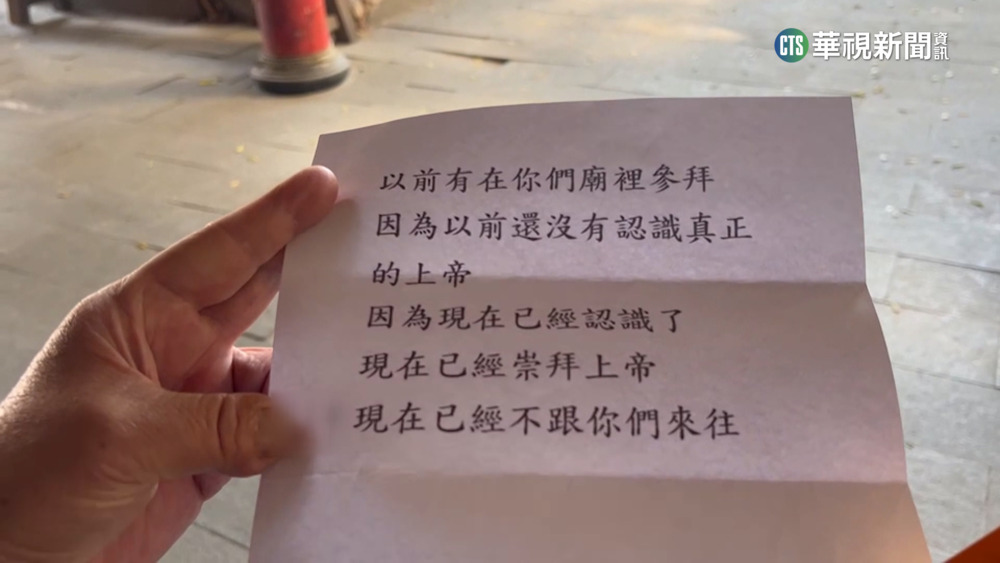 CTS 華視新聞 資訊
以前有在你們廟裡參拜
因為以前還沒有認識真正
的上帝
因為現在已經認識了
現在已經崇拜上帝
現在已經不跟你們來往